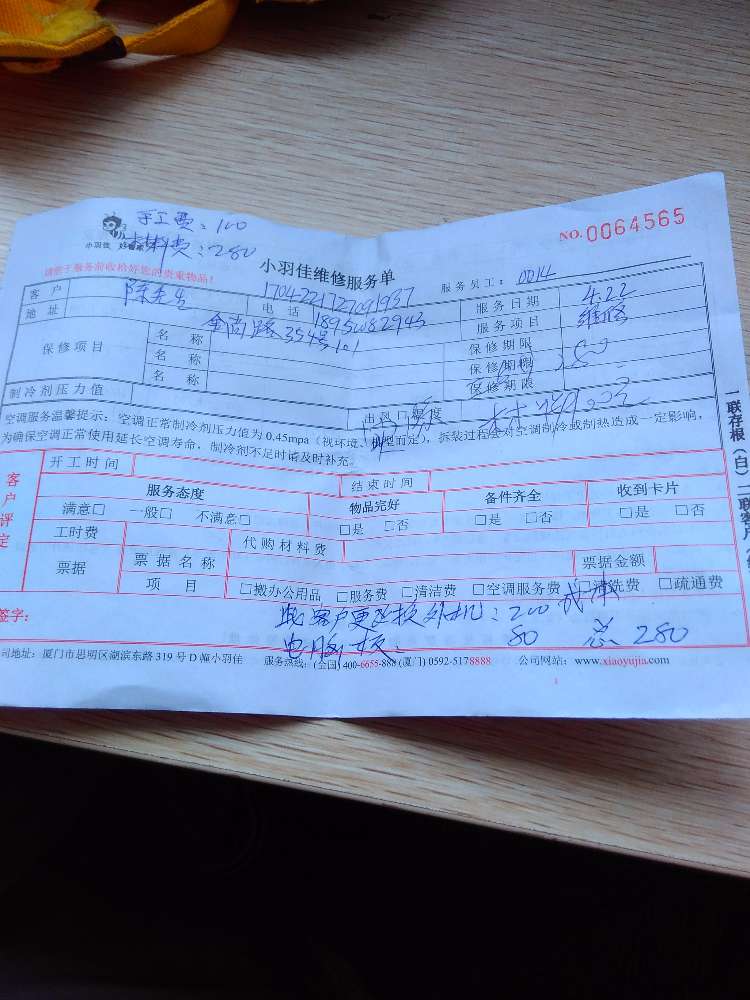 手工费：100
材料费：280
小羽佳
NO.0064565
请您于服务前收拾好您的贵重物品！
小羽佳维修服务单
服务员工：0014
客户 陈先生 1704221727091937 服务日期 4.22
地址 金尚路354号101 电话 18950082943 服务项目 维修
保修项目
名称 保修期限
名称 保修期限
名称 保修期限
制冷剂压力值 出风口温度
空调服务温馨提示：空调正常制冷剂压力值为0.45mpa（视环境、机型而定），拆装过程会对空调制冷或制热造成一定影响，
为确保空调正常使用延长空调寿命，制冷剂不足时请及时补充。
客户评定
开工时间 结束时间
服务态度 物品完好 备件齐全 收到卡片
满意□ 一般□ 不满意□ □是 □否 □是 □否 □是 □否
工时费 代购材料费
票据 票据名称 票据金额
项目 □搬办公用品 □服务费 □清洁费 □空调服务费 □清洗费 □疏通费
签字：
客户更换外机：200
电脑板：80 总280
司地址：厦门市思明区湖滨东路319号D幢小羽佳 服务热线：(全国)400-6655-888 (厦门) 0592-5178888 公司网站：www.xiaoyujia.com
一联存根（白）二联客户